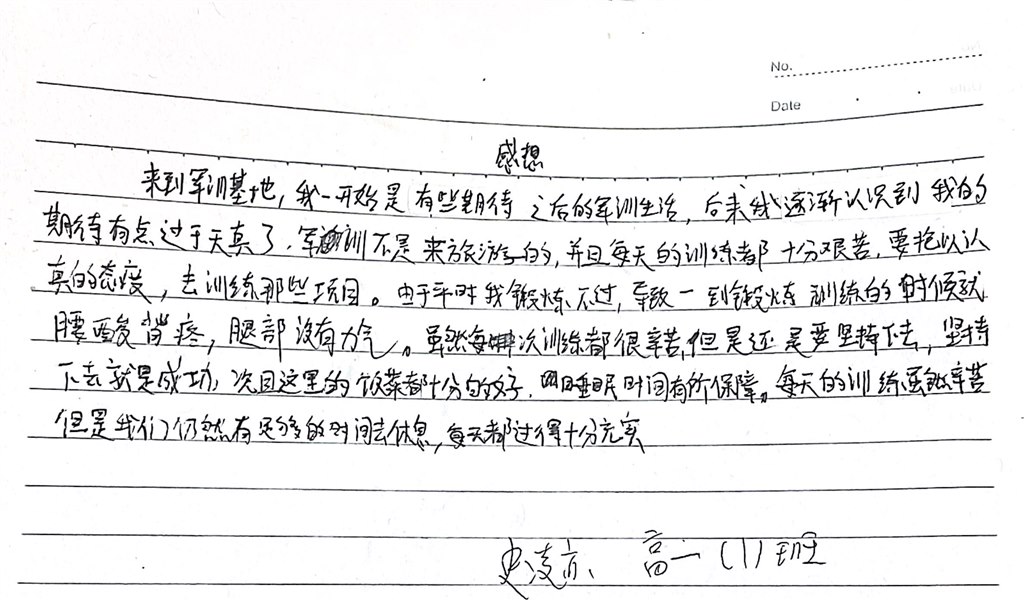 No.
Date
感想
来到军训基地，我一开始是有些期待之后的军训生活，后来我逐渐认识到我的
期待有点过于天真了，军训不是来旅游的，并且每天的训练都十分艰苦，要抱以认
真的态度，去训练那些项目。由于平时我锻炼不过，导致一到锻炼训练的时候就
腰酸背疼，腿部没有力气。虽然每次训练都很辛苦，但是还是要坚持下去，坚持
下去就是成功，次回这里的饭菜都十分的好，睡眠时间有所保障。每天的训练虽然辛苦
但是我们仍然有足够的时间去休息，每天都过得十分充实
史凌亦 高一（1）班